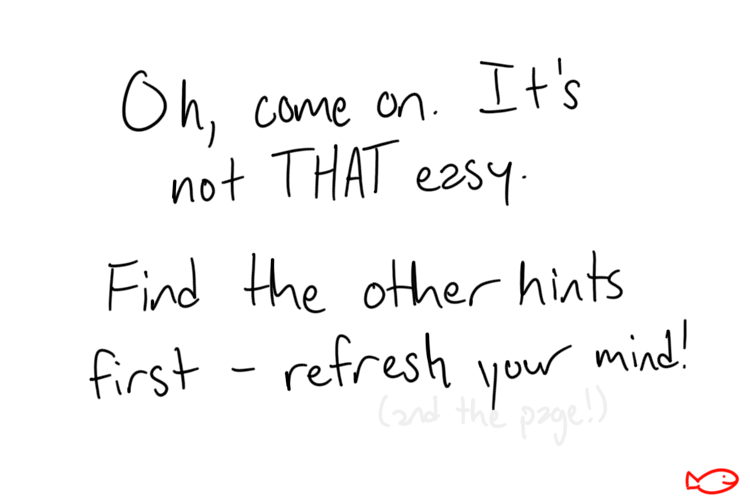 Oh, come on. It's
not THAT easy.
Find the other hints
first - refresh your mind!
(and the page!)